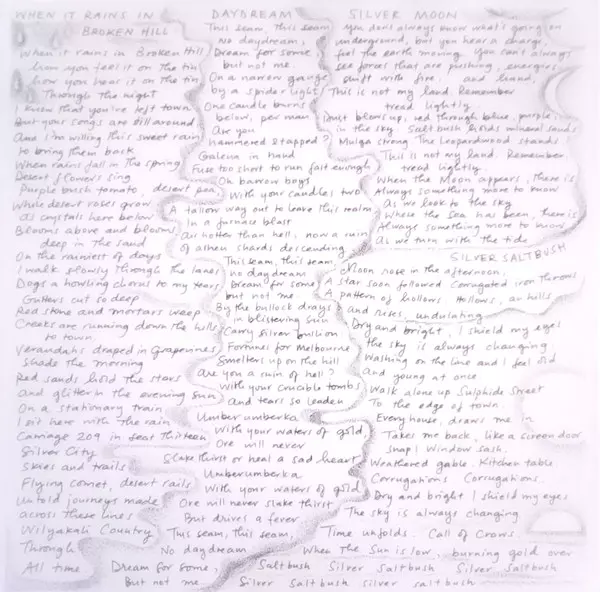 WHEN IT RAINS IN
BROKEN HILL
When it rains in Broken Hill
how you feel it on the tin
how you hear it on the tin
Through the night
I know that you've left town
But your songs are still around
And I'm willing this sweet rain
to bring them back
When rains fall in the Spring
Desert flowers sing
Purple bush tomato, desert pea
While desert roses grow
as crystals here below
Blooms above and blooms
deep in the sand
On the rainiest of days
I walk slowly through the lanes
Dogs a howling chorus to my tears
Gutters cut so deep
Red stone and mortars weep
Creeks are running down the hills
to town
Verandahs draped in Grapevines
shade the morning
Red sands hold the stars
and glitter in the evening sun
On a stationary train
I sit here with the rain
Carriage 209 in seat thirteen
Silver City
Skies and trails
Flying comet, desert rails
Untold journeys made
across these lines
Wilyakali Country
Through
All time
DAYDREAM
This seam, this seam
No daydream,
Dream for some,
but not me.
On a narrow gauge
by a spider light
One candle burns
below, per man
Are you
hammered & tapped?
Galena in hand
Fuse too short to run fast enough
Oh barrow boys
With your candles two
A tallow way out to leave this realm
In a furnace blast
Air hotter than hell, now a rain
of ashen shards descending
This seam, this seam,
no daydream
Dream for some
but not me
By the bullock drays
in blistering sun
Carry Silver bullion
Fortunes for Melbourne
Smelters up on the hill
Are you a ruin of hell?
With your crucible tombs
And tears so leaden
Umberumberka
With your waters of gold
Ore will never
Slake thirst or heal a sad heart
Umberumberka
With your waters of gold
Ore will never slake thirst
But drives a fever
This seam, this seam,
No daydream
Dream for some,
But not me
SILVER MOON
You don't always know what's going on
underground, but you hear a charge,
feel the earth moving. You can't always
see forces that are pushing, energies
shift with fire, and land,
This is not my land. Remember
tread lightly.
Salt blows up, red through blue, purple,
in the sky. Saltbush holds mineral sands
Mulga strong The Leopardwood stands
This is not my land. Remember
tread lightly.
When the Moon appears, there is
Always something more to know
As we look to the sky
Where the sea has been, there is
Always something more to know
As we turn with the tide
SILVER SALTBUSH
Moon rose in the afternoon,
A star soon followed Corrugated iron thrones
A pattern of hollows Hollows, as hills
and rises, undulating
Dry and bright, I shield my eyes
the sky is always changing
Washing on the line and I feel old
And young at once
Walk alone up Sulphide Street
To the edge of town
Every house, draws me in
Takes me back, like a screen door
snap! Window sash.
Weathered gable. Kitchen table
Corrugations Corrugations.
Dry and bright I shield my eyes
The sky is always changing
Time unfolds. Call of Crows.
When the Sun is low, burning gold over
Saltbush Silver Saltbush Silver Saltbush
Silver Saltbush silver saltbush